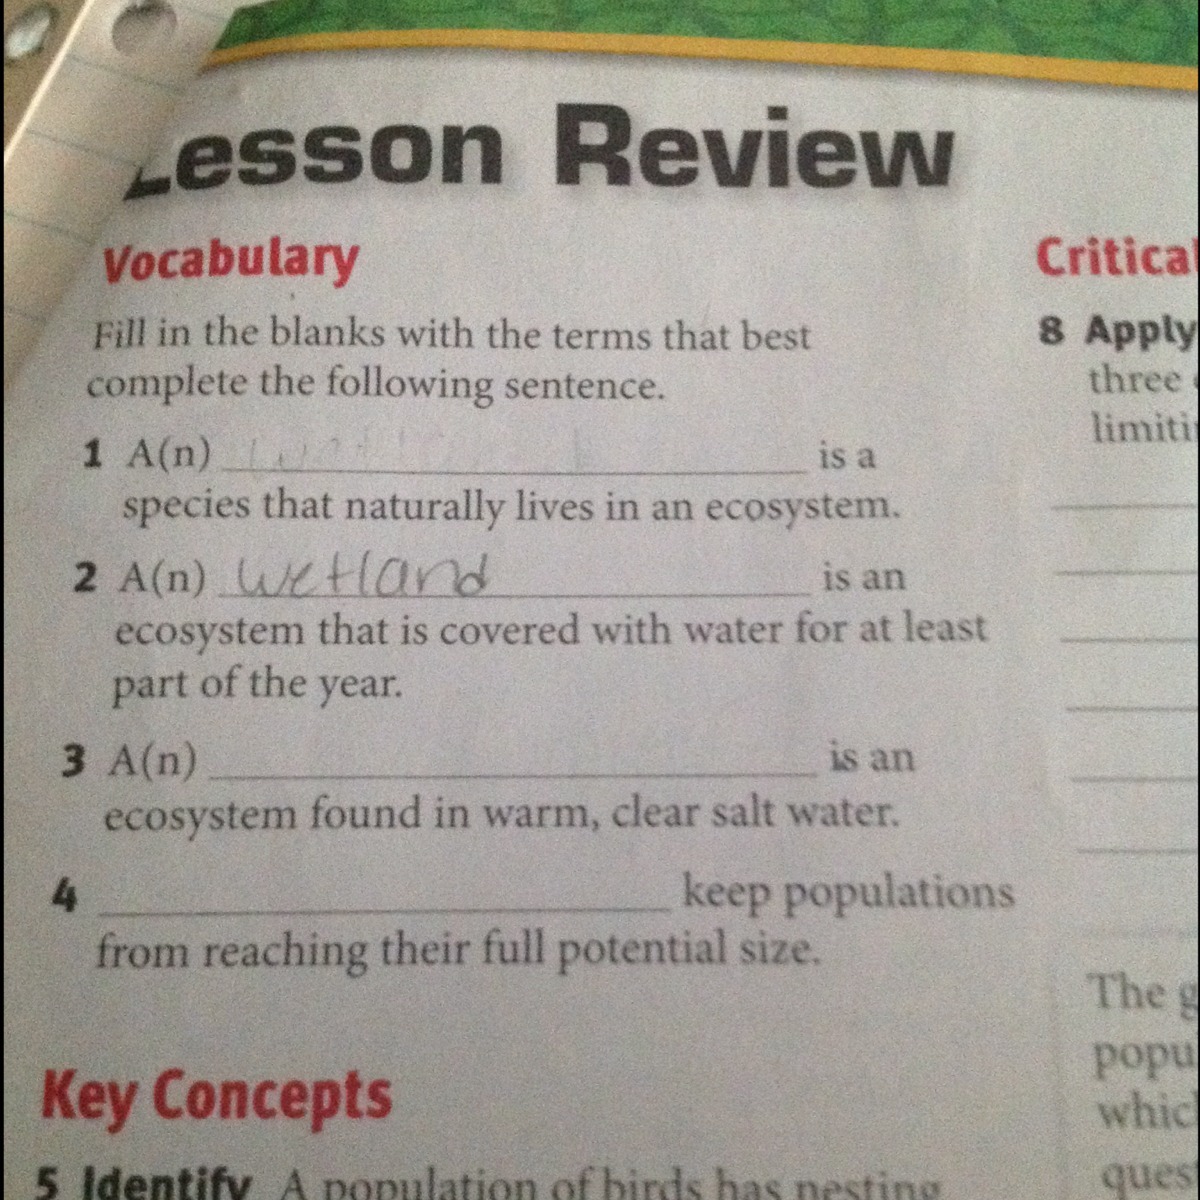 Lesson Review
Vocabulary
Fill in the blanks with the terms that best
complete the following sentence.
1 A(n) ____ is a
species that naturally lives in an ecosystem.
2 A(n) wetland is an
ecosystem that is covered with water for at least
part of the year.
3 A(n) ____ is an
ecosystem found in warm, clear salt water.
4 ____ keep populations
from reaching their full potential size.
Key Concepts
5 Identify A population of birds has nesting
Critical
8 Apply
three
limiti
The g
popu
whic
ques